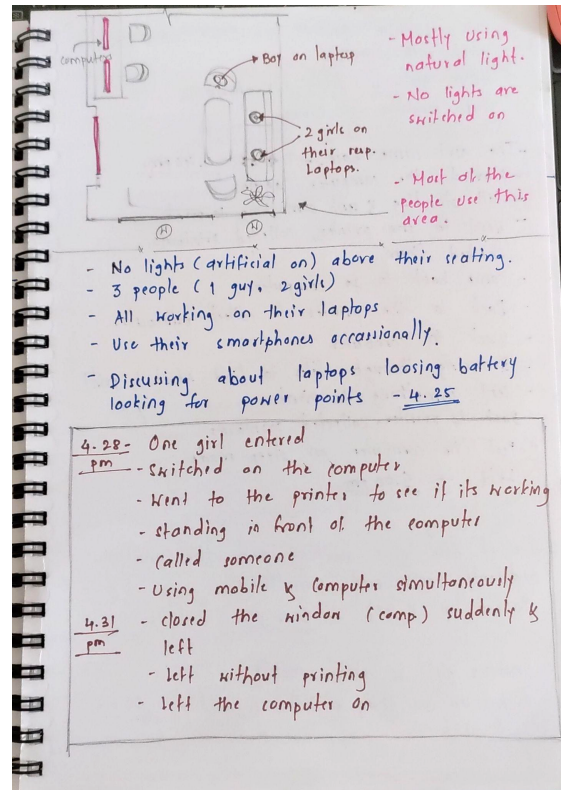 computers
Boy on laptop
2 girls on
their resp.
Laptops.
W
W
- Mostly using
natural light.
- No lights are
switched on
- Most of the
people use this
area.
- No lights (artificial on) above their seating.
- 3 people (1 guy, 2 girls)
- All working on their laptops
- Use their smartphones occassionally.
- Discussing about laptops loosing battery
looking for power points - 4.25
4.28 - One girl entered
pm - Switched on the computer.
- Went to the printer to see if its working
- standing in front of the computer
- Called someone
- Using mobile & computer simultaneously
4.31 - closed the window (comp.) suddenly &
pm left
- left without printing
- left the computer on